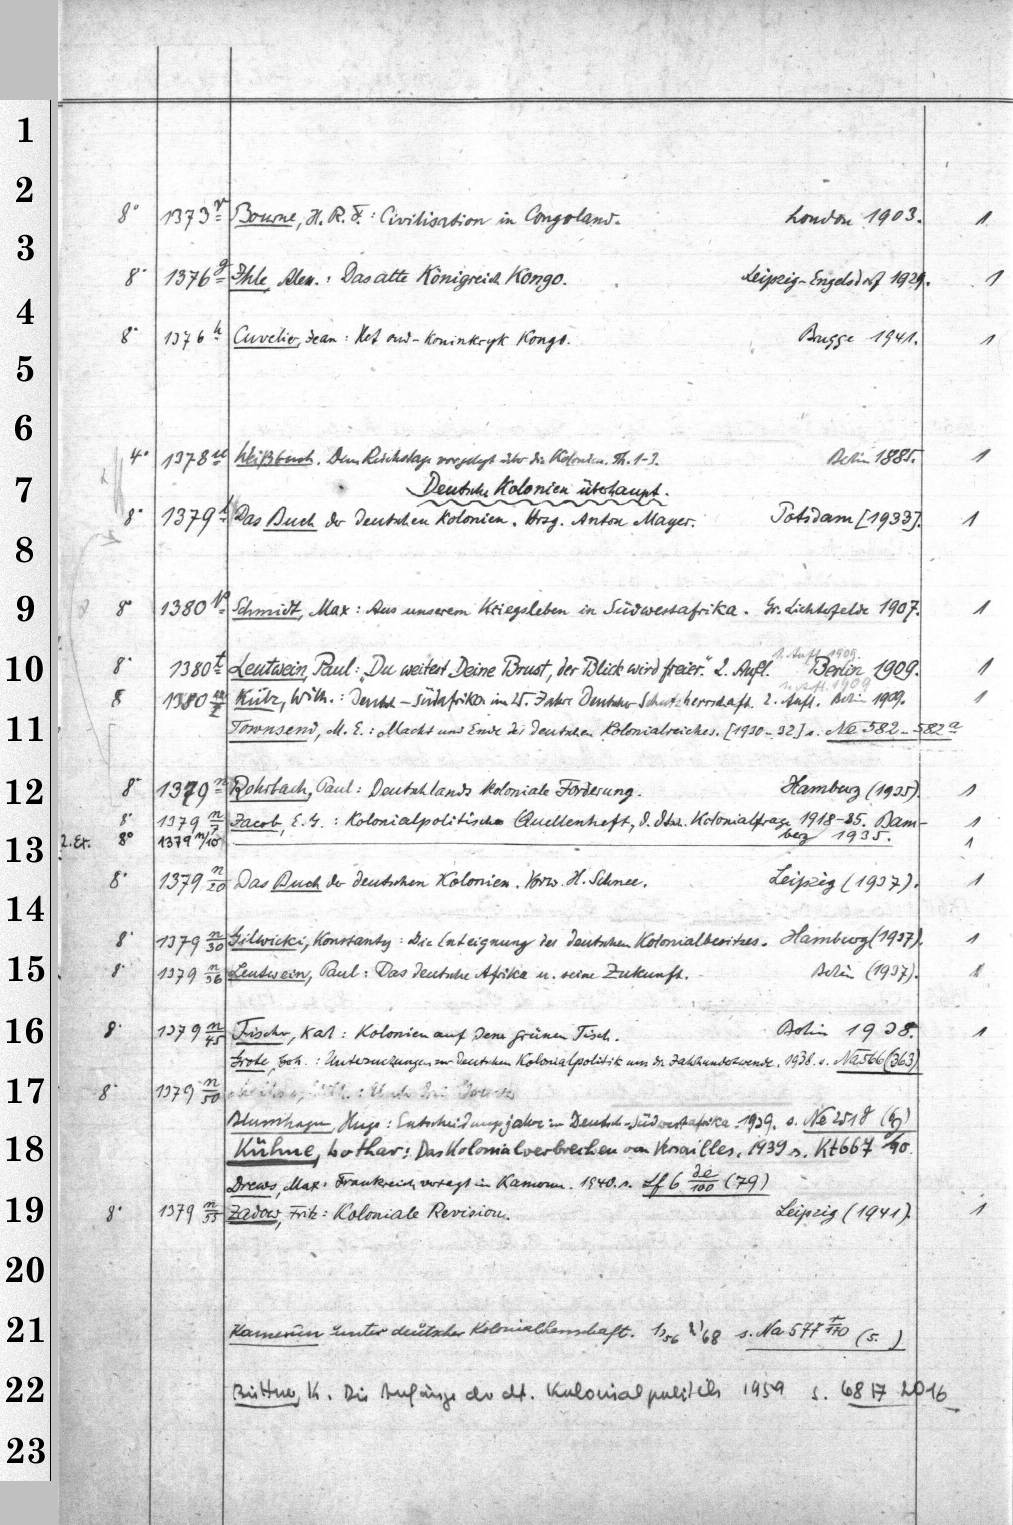 1
2
8° 1373 v Bourne, H. R. F.: Civilisation in Congoland. London 1903. 1
3
8° 1376 g Ihle, Alex.: Das alte Königreich Kongo. Leipzig-Engelsdorf 1929. 1
4
8° 1376 h Cuvelier, Jean: Het oud-Koninkryk Kongo. Brugge 1941. 1
5
6
4° 1378 Weißbuch. Dem Reichstage vorgelegt über die Kolonien. Th. 1-3. Berlin 1885. 1
7 Deutsche Kolonien überhaupt.
8° 1379 Das Buch der deutschen Kolonien. Hrsg. Anton Mayer. Potsdam [1933]. 1
8
9 8° 1380 Schmidt, Max: Aus unserem Kriegsleben in Südwestafrika. Gr. Lichterfelde 1907. 1
1. Aufl. 1909.
10 8° 1380 t Leutwein, Paul: „Du weitest Deine Brust, der Blick wird freier." 2. Aufl. Berlin 1909. 1
1. Aufl. 1909
8 1380 Külz, Wilh.: Deutsch-Südafrika im 25. Jahre Deutscher Schutzherrschaft. 2. Aufl. Berlin 1909. 1
11 Townsend, M. E.: Macht und Ende des deutschen Kolonialreiches. [1930-32] s. Ne 582-582a
12 8° 1379 n Rohrbach, Paul: Deutschlands koloniale Forderung. Hamburg (1935). 1
8° 1379 n/7 Jacob, E. G.: Kolonialpolitisches Quellenheft, d. dtsch. Kolonialfrage 1918-35. Bam-
berg 1935. 1
13 2. Ex. 8° 1379 n/10 1
8° 1379 n/20 Das Buch der deutschen Kolonien. Vorw. H. Schnee. Leipzig (1937). 1
14
8° 1379 n/30 Gilwicki, Konstanty: Die Enteignung des deutschen Kolonialbesitzes. Hamburg (1937). 1
15 8° 1379 n/36 Leutwein, Paul: Das deutsche Afrika u. seine Zukunft. Berlin (1937). 1
16 8° 1379 n/45 Fischer, Karl: Kolonien auf dem grünen Tisch. Berlin 1938. 1
Grote, Joh.: Untersuchungen zur deutschen Kolonialpolitik um die Jahrhundertwende. 1938. s. Na 566 (363)
17 8° 1379 n/50
Blumhagen, Hugo: Entscheidungsjahre in Deutsch-Südwestafrika. 1939. s. Ne 251
18 Kühne, Lothar: Das Kolonialverbrechen von Versailles. 1939 s. Kt 667
Drews, Max: Frankreich versagt in Kamerun. 1940. s. Lf 6 de/100 (79)
19 8° 1379 n/55 Zadow, Fritz: Koloniale Revision. Leipzig (1941). 1
20
21 Kamerun unter deutscher Kolonialherrschaft. s. Na 577 t/110 (5. )
22 Büttner, K. Die Anfänge der dt. Kolonialpolitik 1959 s. 68 17 2016
23